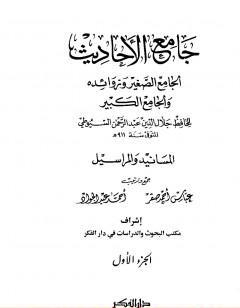 جامع الأحاديث
الجامع الصغير وزوائده
والجامع الكبير
للحافظ جلال الدين عبد الرحمن السيوطي
المتوفى سنة ٩١١ هـ
المسانيد والمراسيل
جمع وترتيب
عباس أحمد صقر أحمد عبد الجواد
إشراف
مكتب البحوث والدراسات في دار الفكر
الجزء الأول
دار الفكر